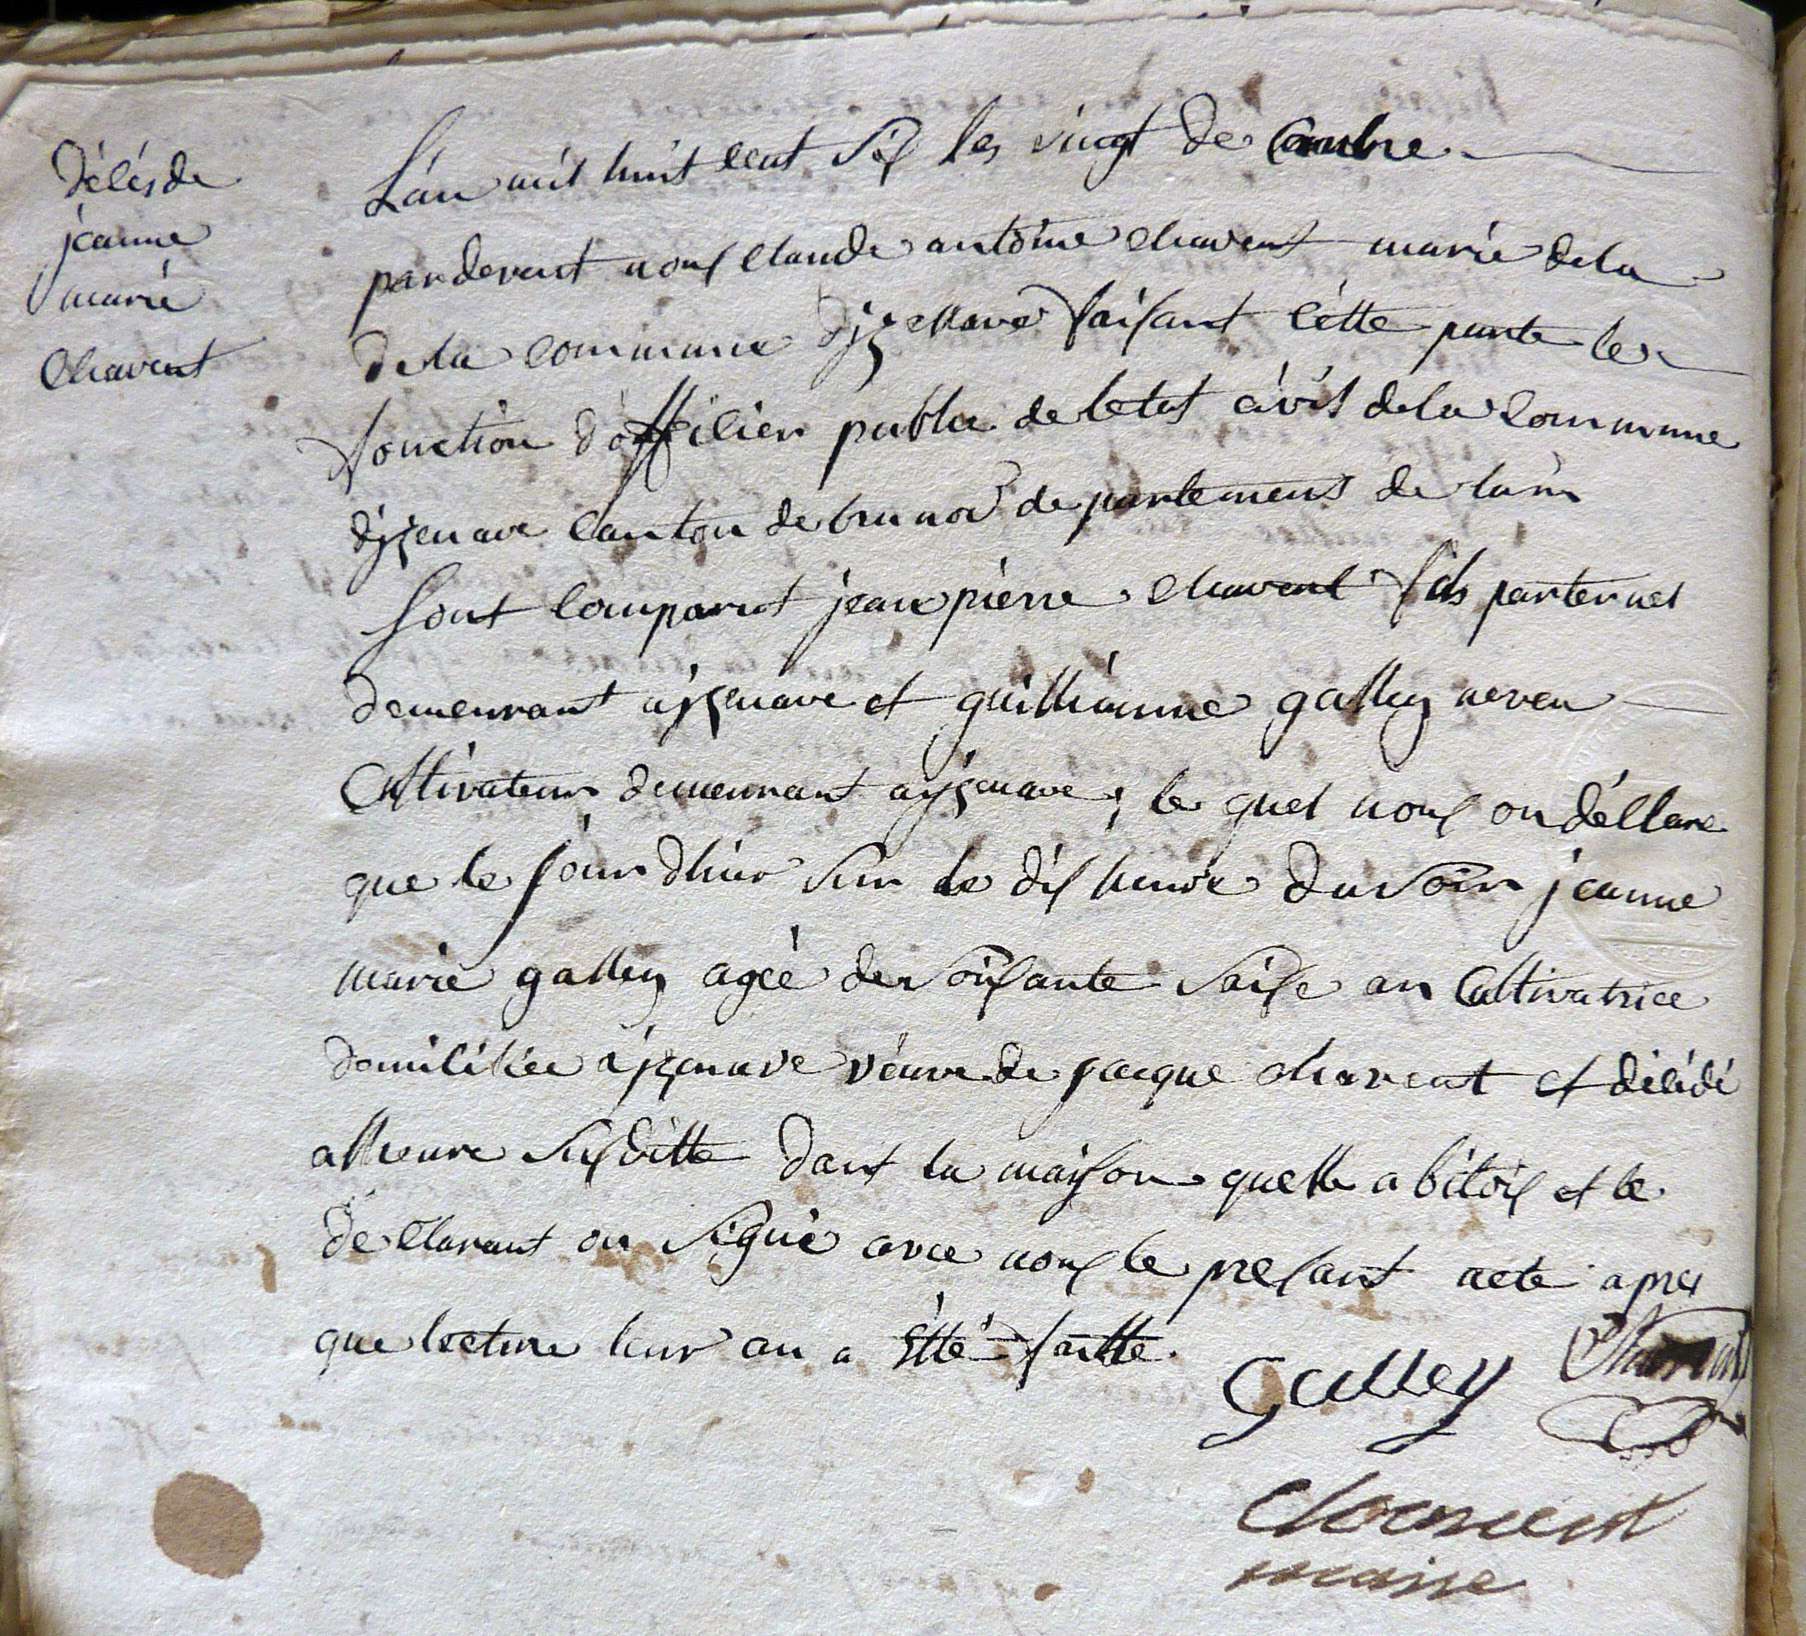 décés de
jeanne
marie
chavent
Lan mil huit cent six les vingt de cembre
par devent nous claude antoine chavent marie dela
de la commune dizenave faisant cette parte les
fonction d'officier public deletat civil dela commune
dizenave canton de brunod departement de lain
sont comparut jean pierre chavent fils parternel
demeurant a izenave et guillieaume galley neveu
Cultivateur demeurant a yzenave, le quel nous on déllare
que le jour dhier sur le dix heure du soir jeanne
marie galley agée der soisante saise an Cultivatrice
domiliciée a izenave veuve de jacque chavent et décédé
alheure susditte dant la maison quelle abitois et le
declarant on signé avec nous le presant acte apres
que lecture leur an a étté faitte.
Galley
chavent
maire